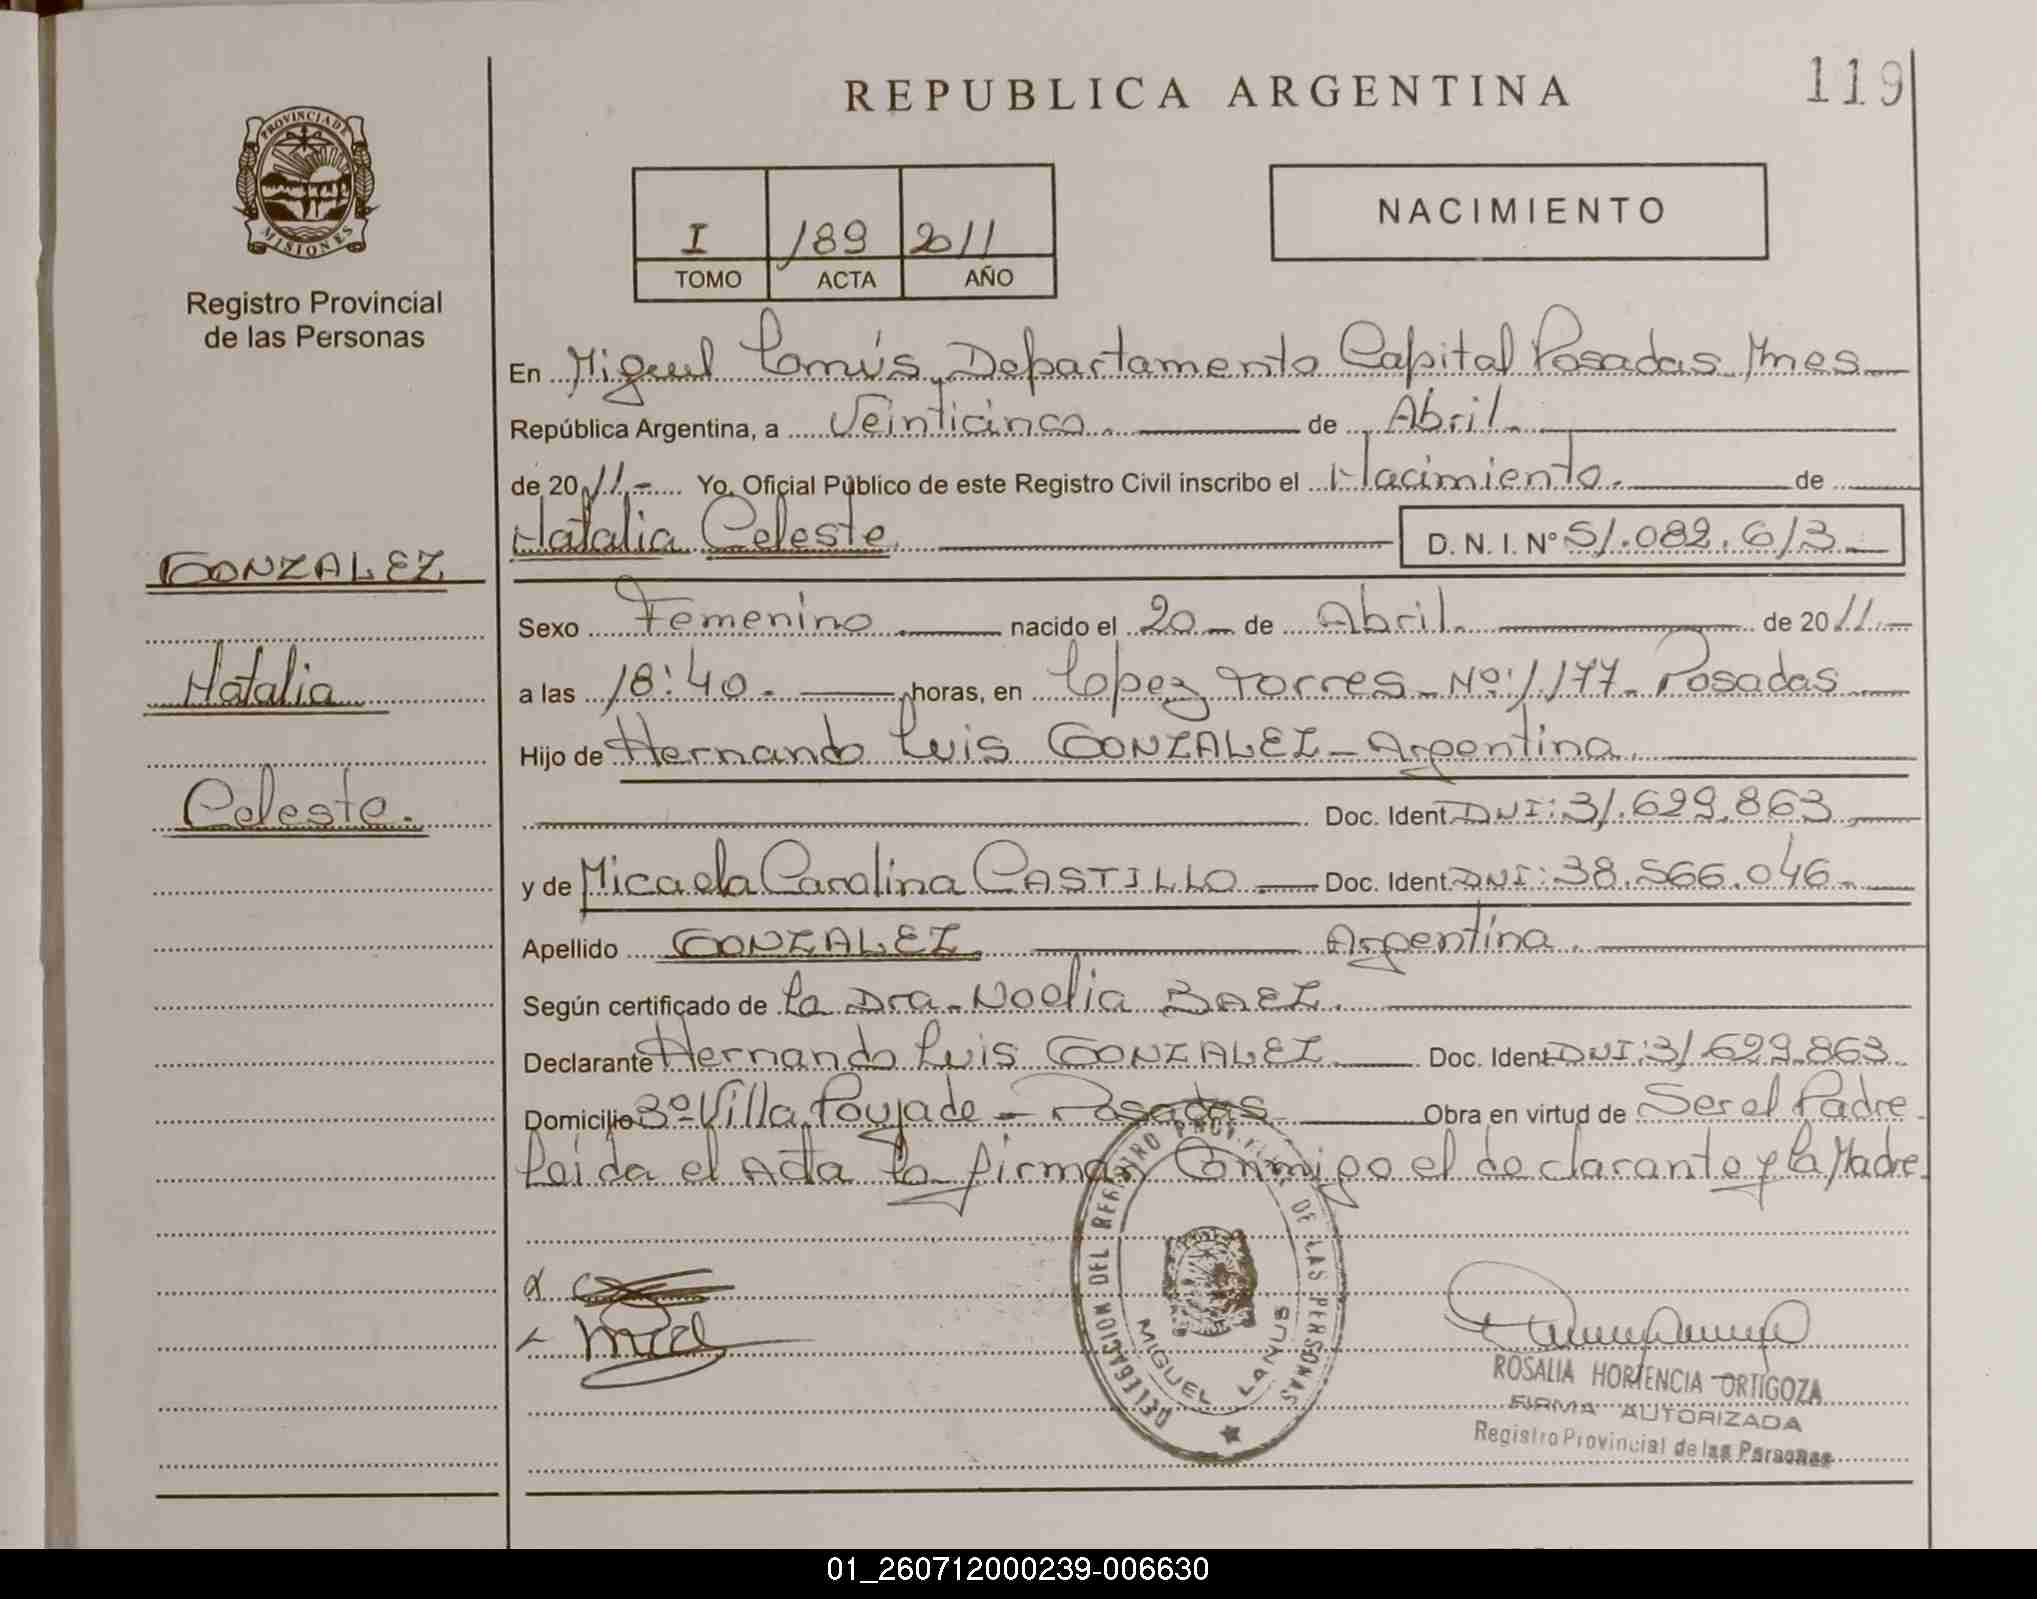 REPUBLICA ARGENTINA
119
PROVINCIA DE
MISIONES
Registro Provincial
de las Personas
I 189 2011
TOMO ACTA AÑO
NACIMIENTO
En Miguel Lanús, Departamento Capital Posadas Mnes
República Argentina, a Veinticinco. de Abril.
de 2011.- Yo, Oficial Público de este Registro Civil inscribo el Nacimiento. de
Natalia Celeste. D. N. I. Nº 51.082.613
GONZALEZ
Natalia
Celeste.
Sexo Femenino nacido el 20 de Abril. de 2011.
a las 18:40. horas, en Lopez Torres Nº 1177 Posadas
Hijo de Hernando Luis GONZALEZ - Argentina.
Doc. Ident. DNI: 31.629.863
y de Micaela Carolina CASTILLO Doc. Ident. DNI: 38.566.046.
Apellido GONZALEZ. Argentina.
Según certificado de la Dra. Noelia BAEZ.
Declarante Hernando Luis GONZALEZ Doc. Ident. DNI: 31.629.863
Domicilio Bº Villa Poujade - Posadas Obra en virtud de Ser el Padre.
Leida el Acta la firman Conmigo el declarante y la Madre.
DELEGACION DEL REGISTRO PROVINCIAL DE LAS PERSONAS
MIGUEL LANUS
ROSALIA HORTENCIA ORTIGOZA
FIRMA AUTORIZADA
Registro Provincial de las Personas
01_260712000239-006630